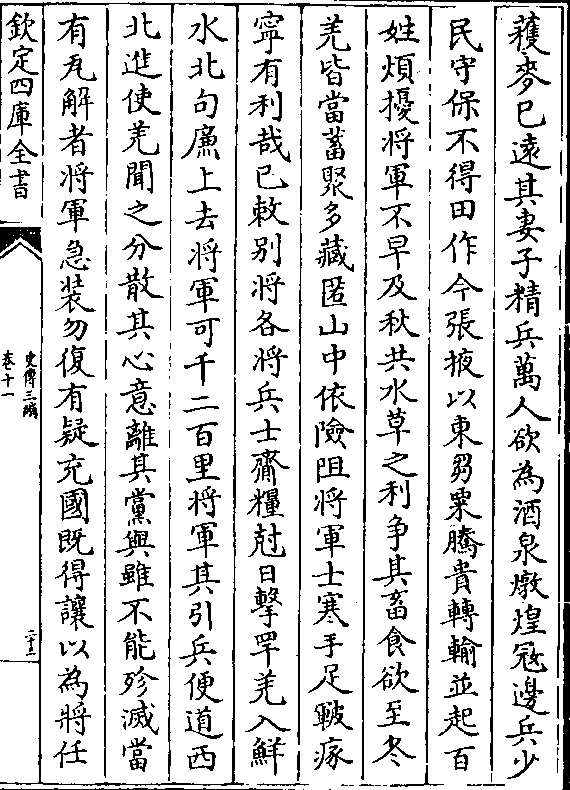 蒦麥已逺其妻子精兵萬人欲為酒泉燉煌冦邊兵少
民守保不得田作今張掖以東芻粟騰貴轉輸並起百
姓煩擾将軍不早及秋共水草之利争其畜食欲至冬
羌皆當蓄聚多藏匿山中依險阻将軍士寒手足皸瘃
寧有利哉已敕别将各将兵士齎糧尅日擊䍐羌入鮮
水北句㢘上去将軍可千二百里将軍其引兵便道西
北進使羌聞之分散其心意離其黨與雖不能殄滅當
有瓦解者将軍急装勿復有疑充國既得讓以為將任
欽定四庫全書
史傳三編
卷十一
二十三